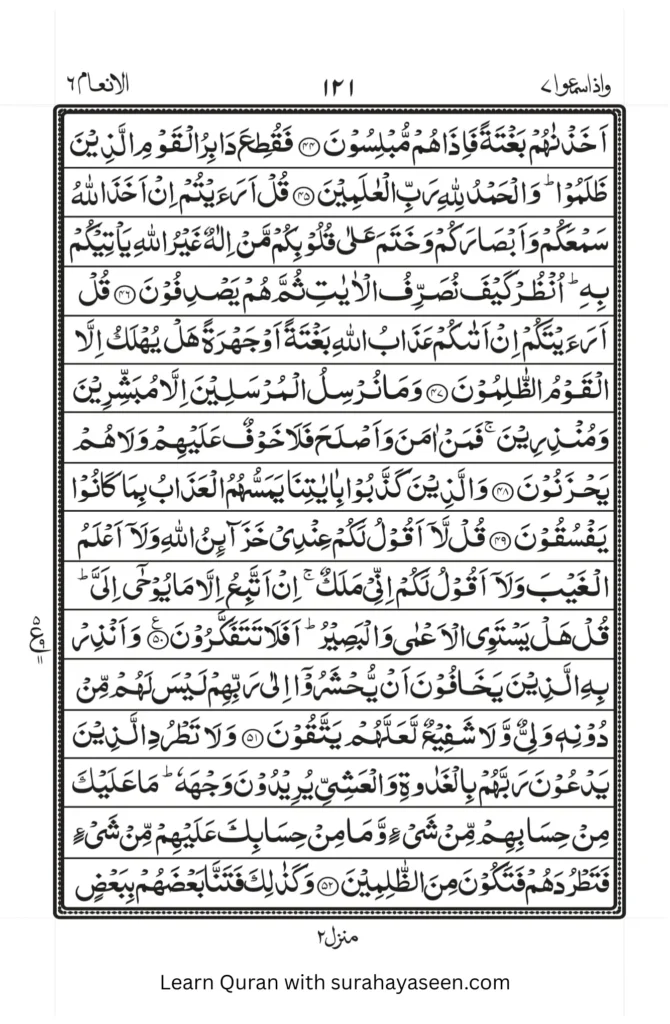 الانعام ٦ ١٢١ واذاسمعوا ٧
اَخَذۡنٰهُمۡ بَغۡتَةً فَاِذَا هُمۡ مُّبۡلِسُوۡنَ ﴿۴۴﴾ فَقُطِعَ دَابِرُ الۡقَوۡمِ الَّذِيۡنَ
ظَلَمُوۡا ؕ وَالۡحَمۡدُ لِلّٰهِ رَبِّ الۡعٰلَمِيۡنَ ﴿۴۵﴾ قُلۡ اَرَءَيۡتُمۡ اِنۡ اَخَذَ اللّٰهُ
سَمۡعَكُمۡ وَاَبۡصَارَكُمۡ وَخَتَمَ عَلٰى قُلُوۡبِكُمۡ مَّنۡ اِلٰهٌ غَيۡرُ اللّٰهِ يَاۡتِيۡكُمۡ
بِهٖ ؕ اُنْظُرۡ كَيۡفَ نُصَرِّفُ الۡاٰيٰتِ ثُمَّ هُمۡ يَصۡدِفُوۡنَ ﴿۴۶﴾ قُلۡ
اَرَءَيۡتَكُمۡ اِنۡ اَتٰٮكُمۡ عَذَابُ اللّٰهِ بَغۡتَةً اَوۡ جَهۡرَةً هَلۡ يُهۡلَكُ اِلَّا
الۡقَوۡمُ الظّٰلِمُوۡنَ ﴿۴۷﴾ وَمَا نُرۡسِلُ الۡمُرۡسَلِيۡنَ اِلَّا مُبَشِّرِيۡنَ
وَمُنۡذِرِيۡنَ ۚ فَمَنۡ اٰمَنَ وَاَصۡلَحَ فَلَا خَوۡفٌ عَلَيۡهِمۡ وَلَا هُمۡ
يَحۡزَنُوۡنَ ﴿۴۸﴾ وَالَّذِيۡنَ كَذَّبُوۡا بِاٰيٰتِنَا يَمَسُّهُمُ الۡعَذَابُ بِمَا كَانُوۡا
يَفۡسُقُوۡنَ ﴿۴۹﴾ قُلْ لَّاۤ اَقُوۡلُ لَكُمۡ عِنۡدِىۡ خَزَآٮِٕنُ اللّٰهِ وَلَاۤ اَعۡلَمُ
الۡغَيۡبَ وَلَاۤ اَقُوۡلُ لَكُمۡ اِنِّىۡ مَلَكٌ ۚ اِنۡ اَتَّبِعُ اِلَّا مَا يُوۡحٰٓى اِلَىَّ ؕ
قُلۡ هَلۡ يَسۡتَوِى الۡاَعۡمٰى وَالۡبَصِيۡرُ ؕ اَفَلَا تَتَفَكَّرُوۡنَ ﴿۵۰﴾ وَاَنۡذِرۡ
بِهِ الَّذِيۡنَ يَخَافُوۡنَ اَنۡ يُّحۡشَرُوۡۤا اِلٰى رَبِّهِمۡ لَيۡسَ لَهُمۡ مِّنۡ
دُوۡنِهٖ وَلِىٌّ وَّلَا شَفِيۡعٌ لَّعَلَّهُمۡ يَتَّقُوۡنَ ﴿۵۱﴾ وَلَا تَطۡرُدِ الَّذِيۡنَ
يَدۡعُوۡنَ رَبَّهُمۡ بِالۡغَدٰوةِ وَالۡعَشِىِّ يُرِيۡدُوۡنَ وَجۡهَهٗ ؕ مَا عَلَيۡكَ
مِنۡ حِسَابِهِمۡ مِّنۡ شَىۡءٍ وَّمَا مِنۡ حِسَابِكَ عَلَيۡهِمۡ مِّنۡ شَىۡءٍ
فَتَطۡرُدَهُمۡ فَتَكُوۡنَ مِنَ الظّٰلِمِيۡنَ ﴿۵۲﴾ وَكَذٰلِكَ فَتَنَّا بَعۡضَهُمۡ بِبَعۡضٍ
منزل ٢
Learn Quran with surahayaseen.com